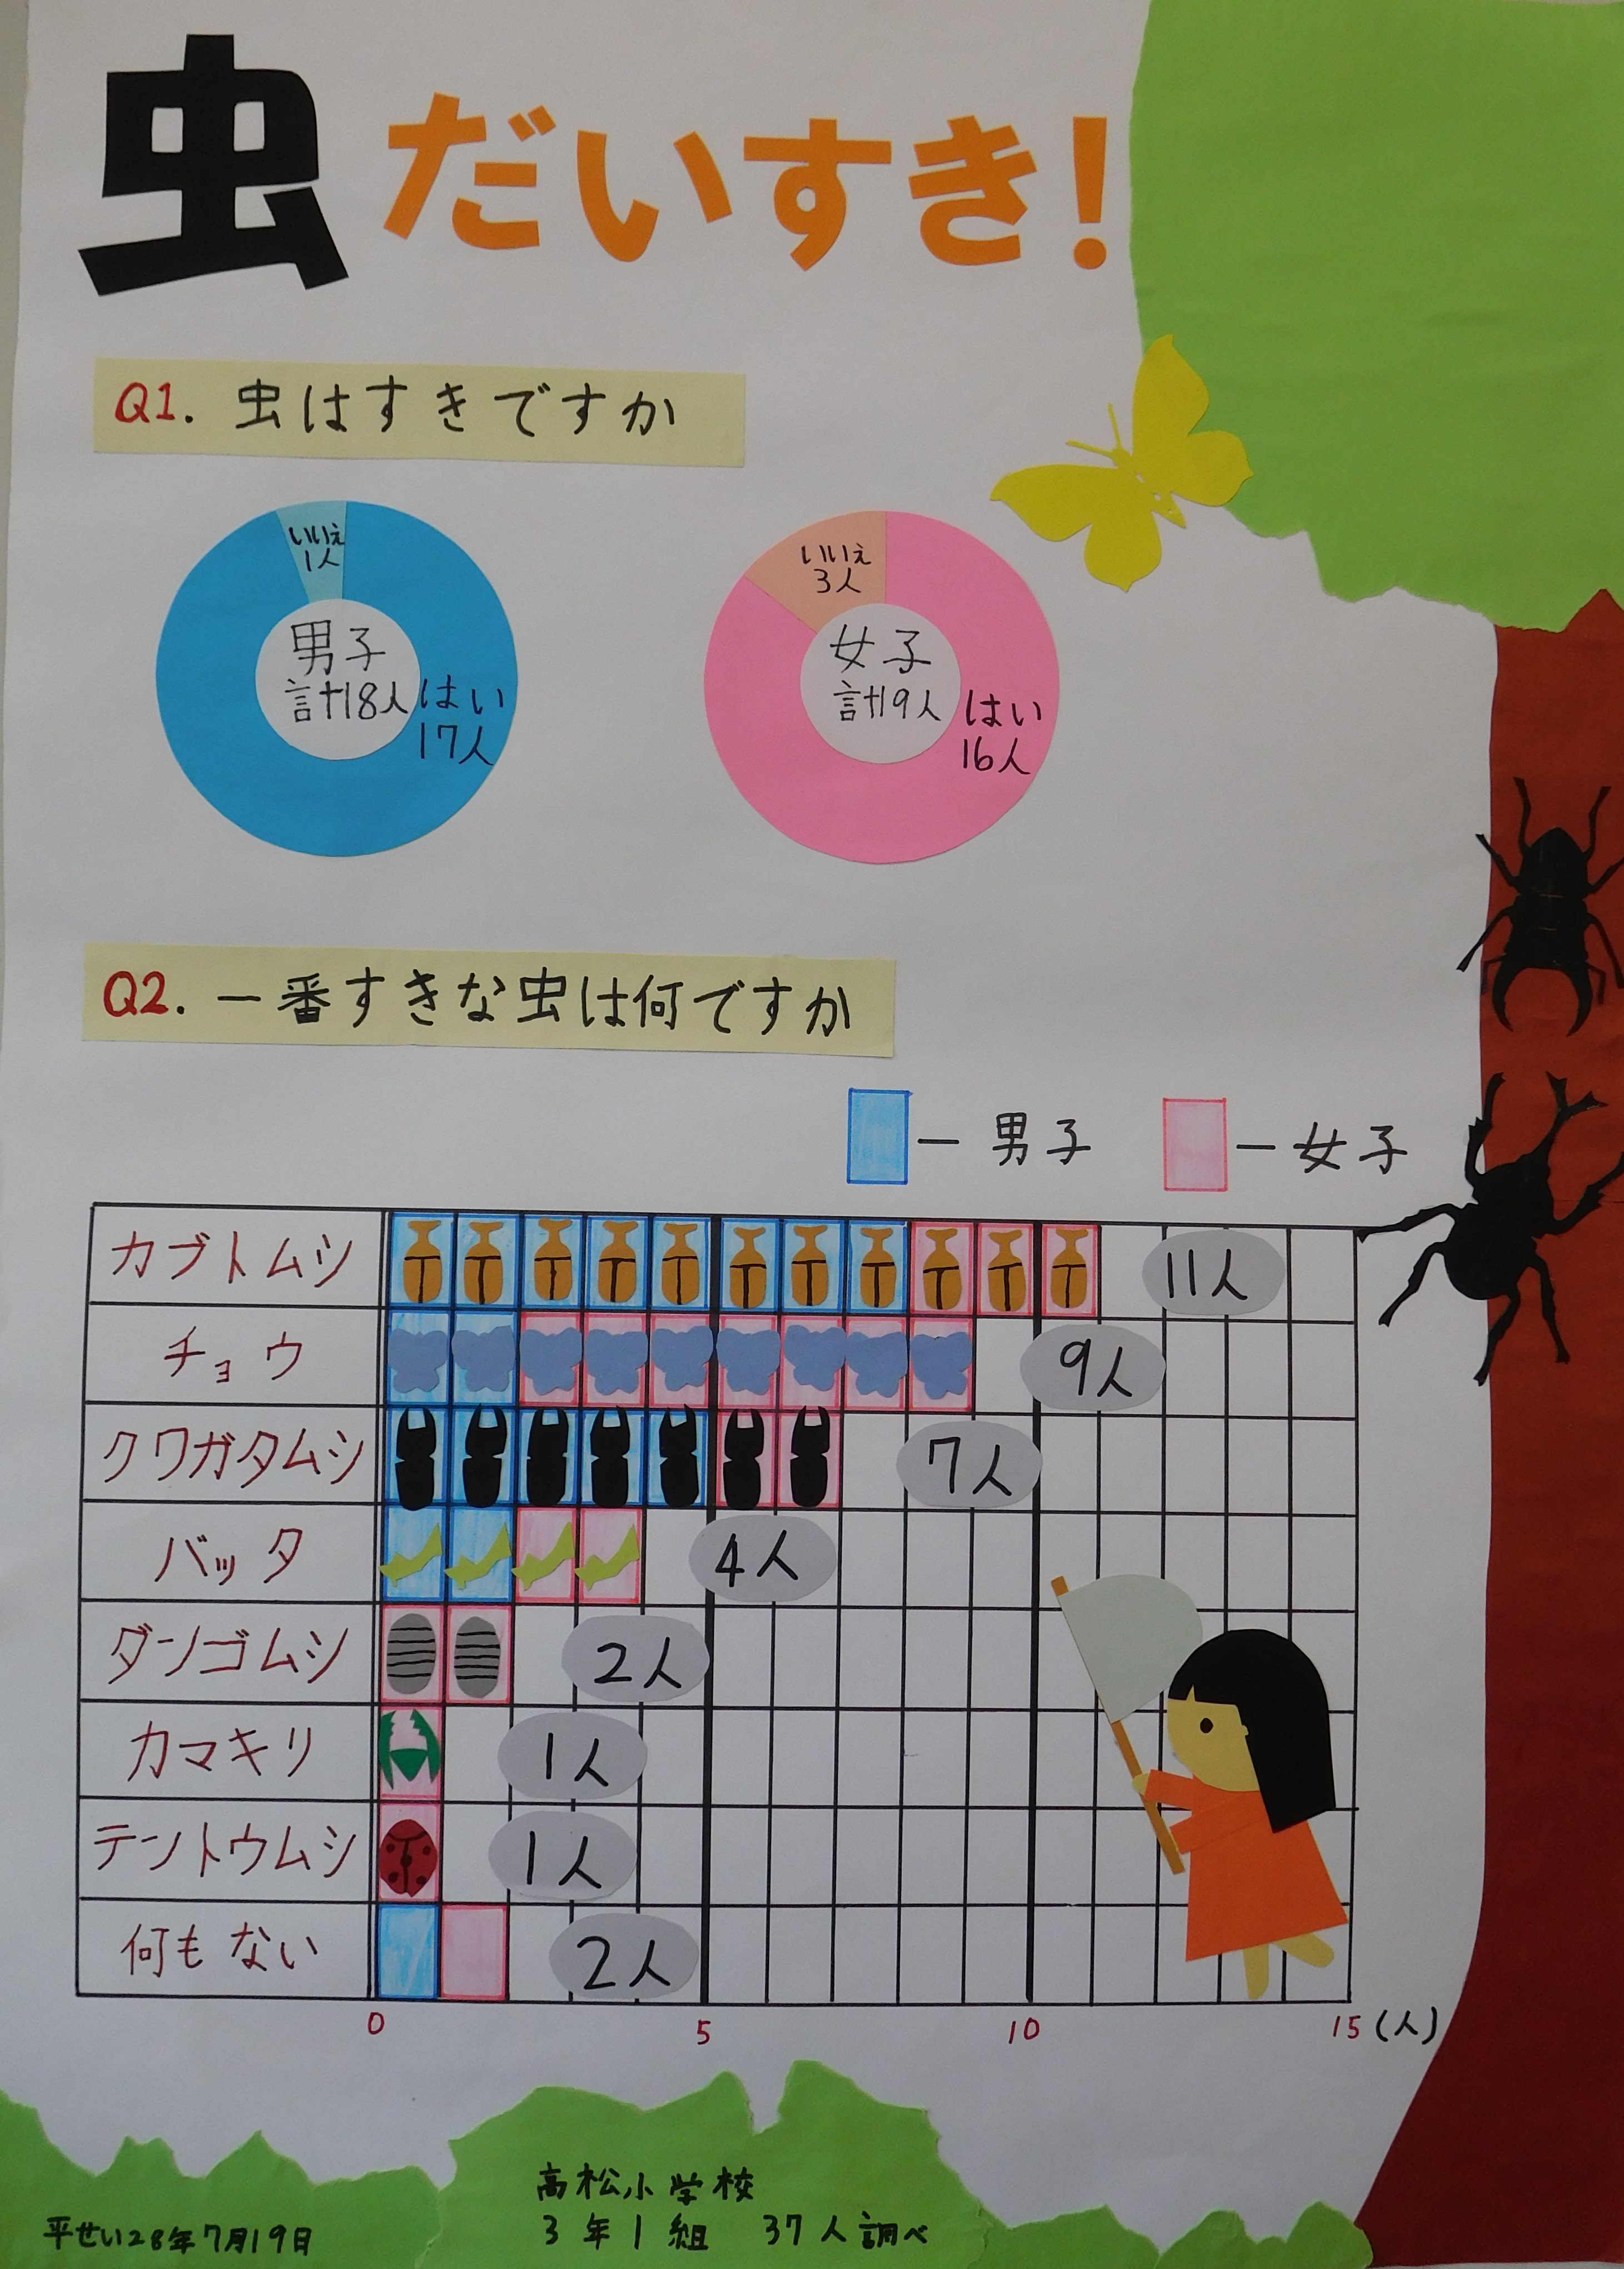 虫だいすき!
Q1. 虫はすきですか
いいえ
1人
男子
計18人
はい
17人
いいえ
3人
女子
計19人
はい
16人
Q2. 一番すきな虫は何ですか
― 男子 ― 女子
カブトムシ 11人
チョウ 9人
クワガタムシ 7人
バッタ 4人
ダンゴムシ 2人
カマキリ 1人
テントウムシ 1人
何もない 2人
0 5 10 15 (人)
高松小学校
3年1組 37人調べ
平せい28年7月19日